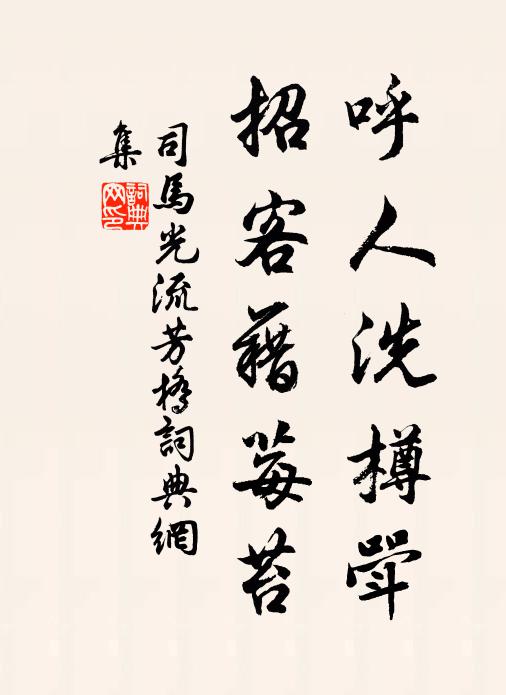 呼人洗樽斝
招客藉莓苔
司馬光流芳橋詞典網
集
詞典
网印